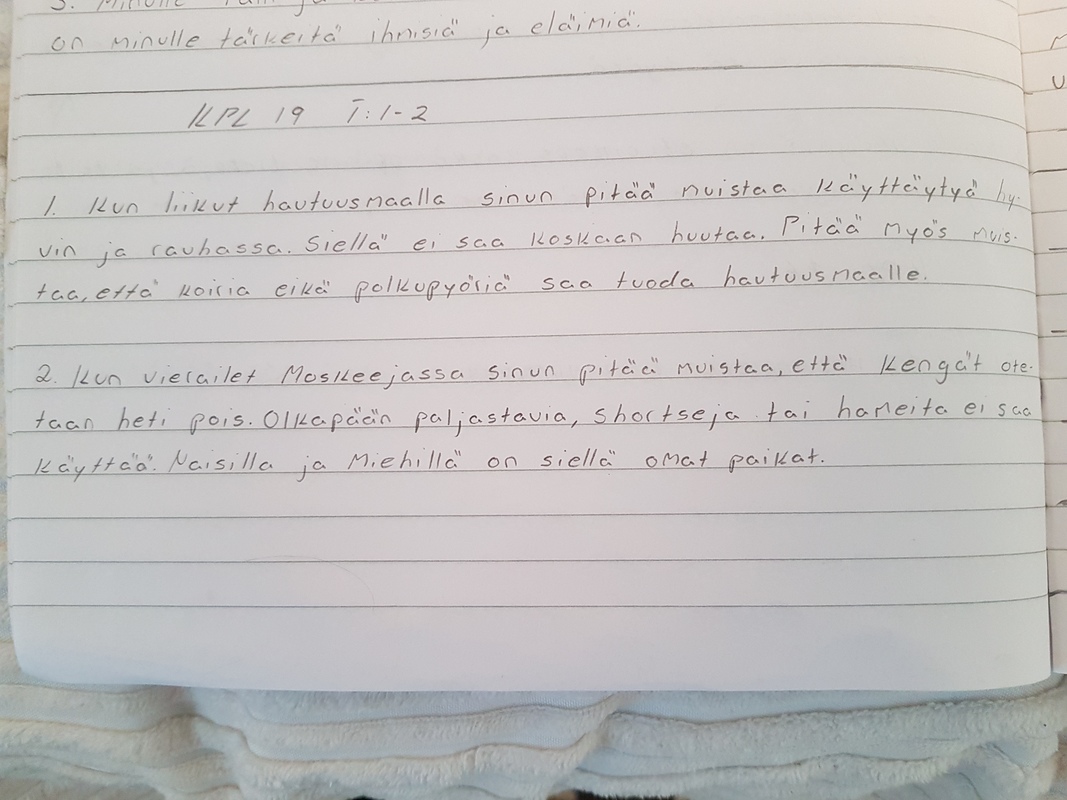 3. Minulle
on minulle tärkeitä ihmisiä ja eläimiä.
KPL 19 T: 1-2
1. Kun liikut hautuusmaalla sinun pitää muistaa käyttäytyä hy-
vin ja rauhassa. Siellä ei saa koskaan huutaa. Pitää myös muis-
taa, että koiria eikä polkupyöriä saa tuoda hautuusmaalle.
2. Kun vierailet Moskeejassa sinun pitää muistaa, että kengät ote-
taan heti pois. Olkapään paljastavia, shortseja tai hameita ei saa
käyttää. Naisilla ja Miehillä on siellä omat paikat.